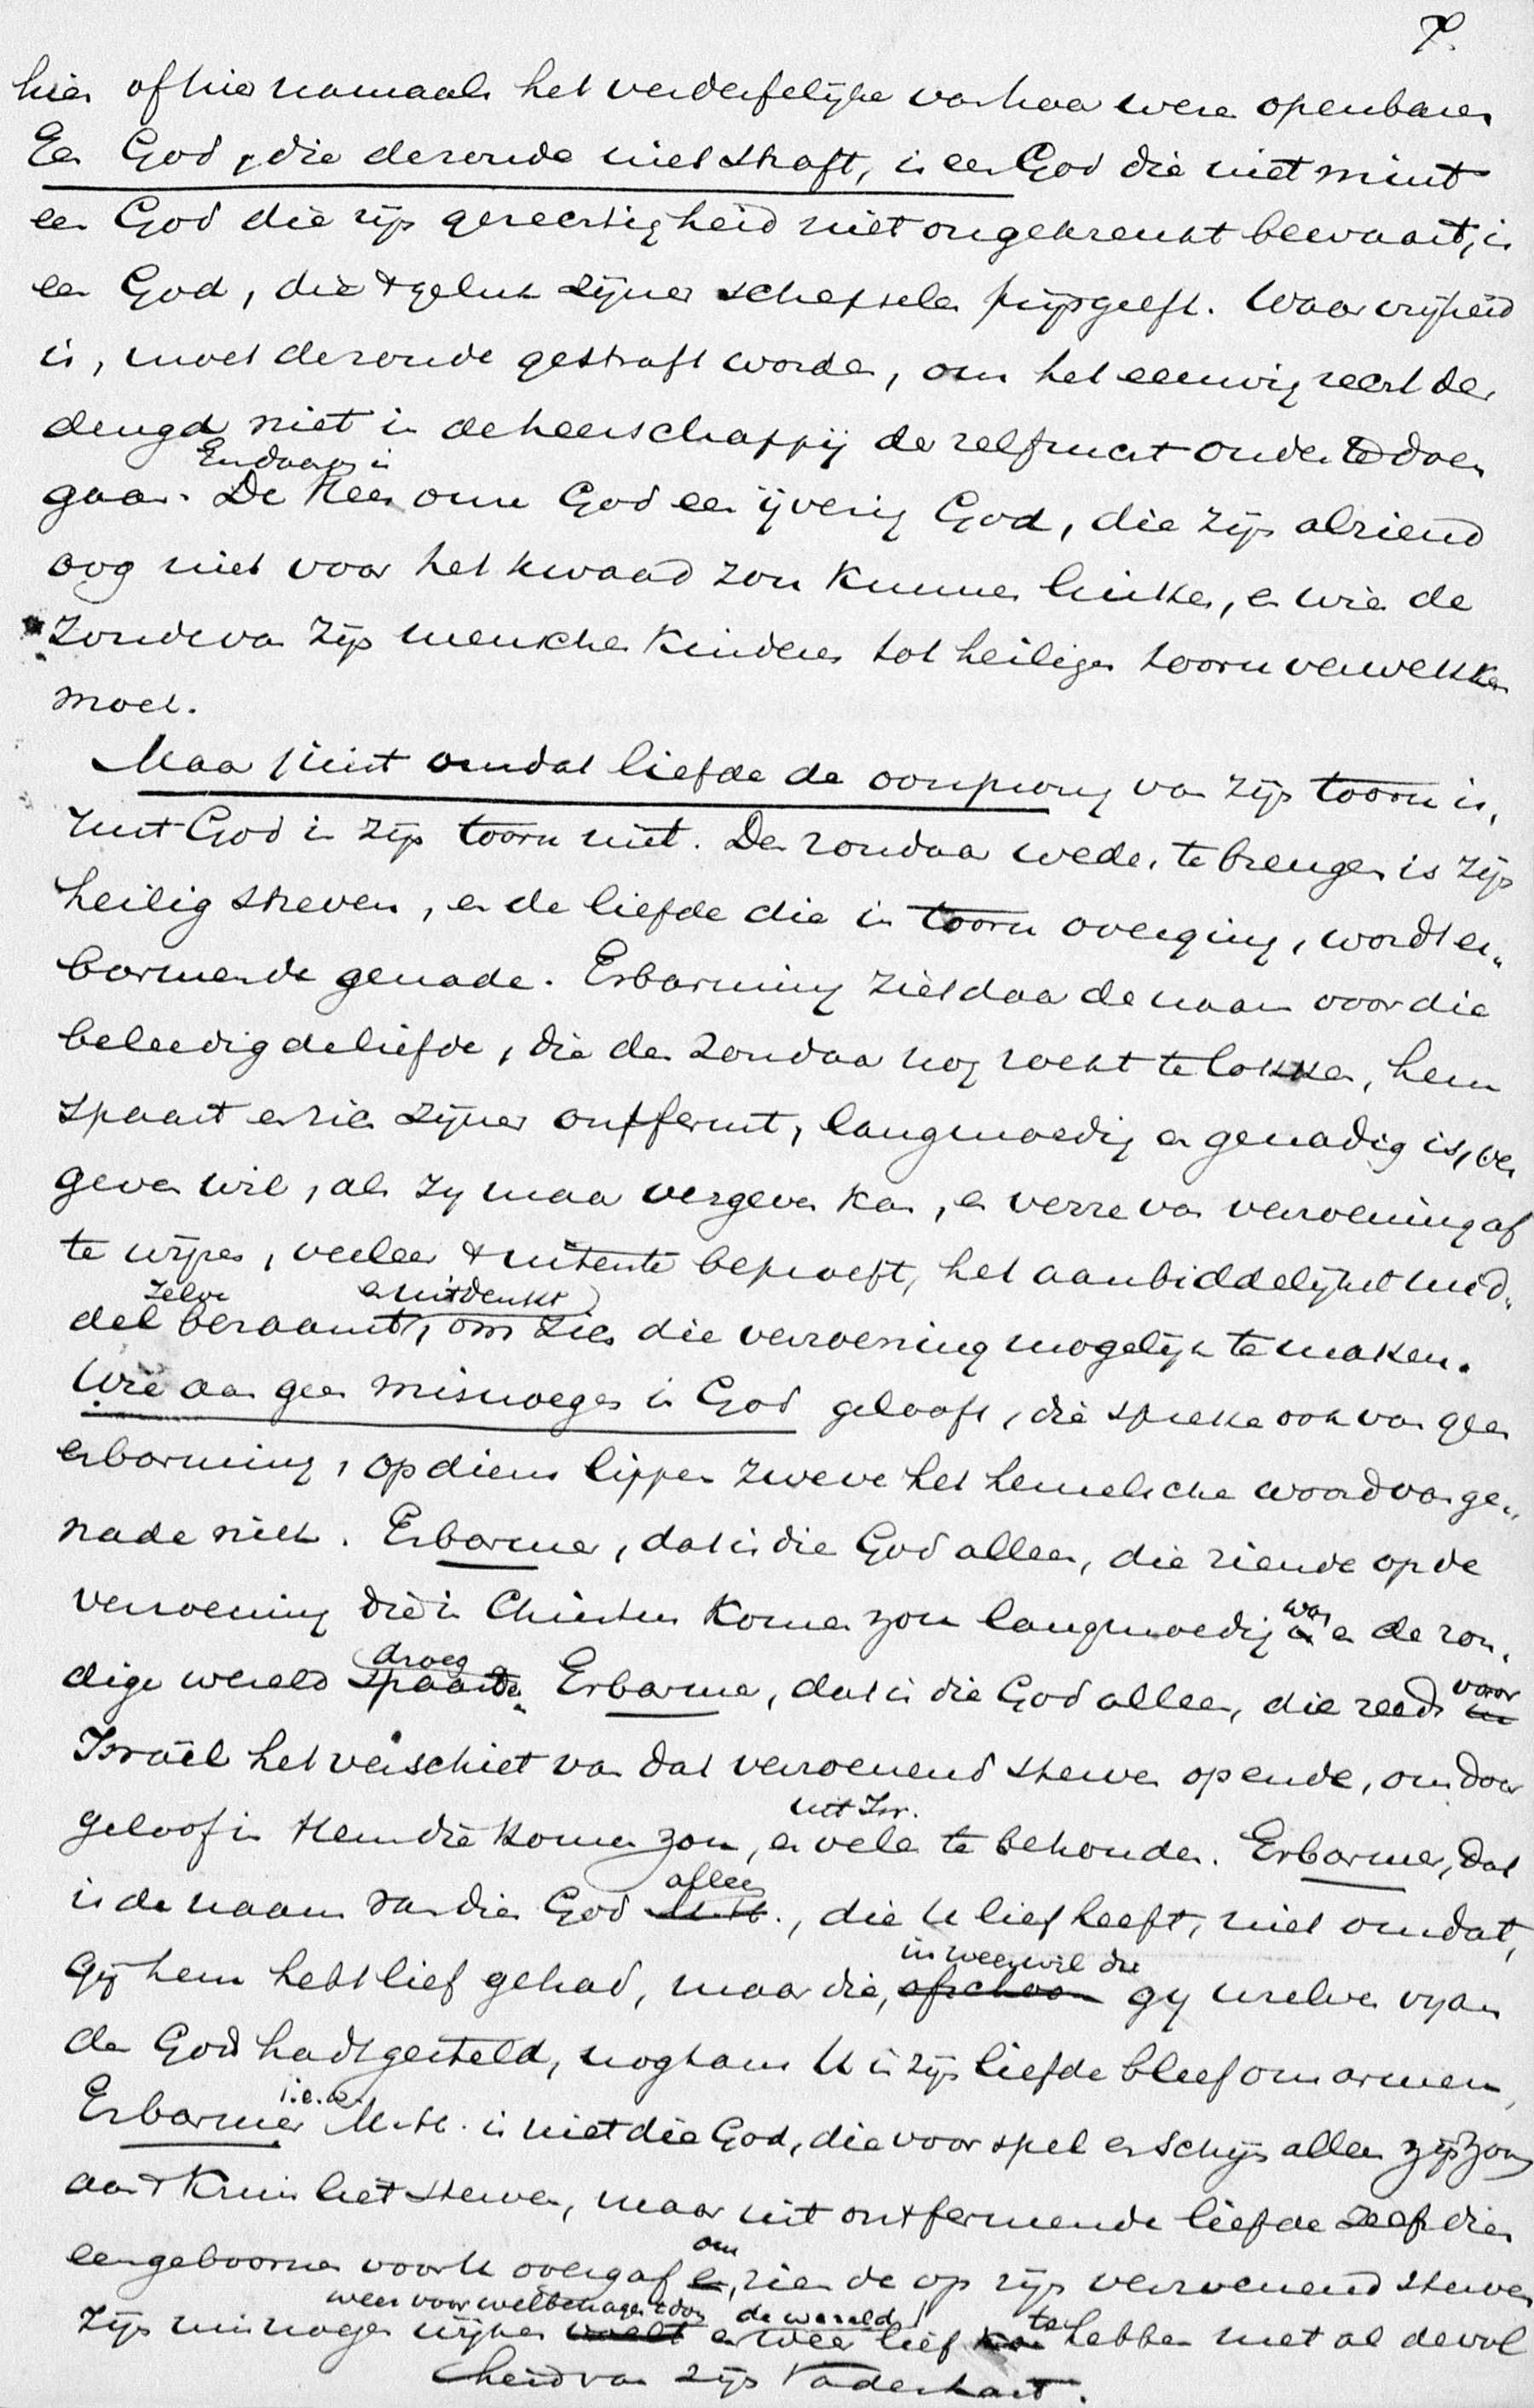 7.
hier of hier namaals het verderfelijke van haar wezen openbaren
Een God, die de zonde niet straft, is een God die niet mint
een God die zijn gerechtigheid niet ongekrenkt bewaart, is
een God, die 't geluk zijner schepselen prijsgeeft. Waar vrijheid
is, moet de zonde gestraft worden, om het eeuwig recht der
deugd niet in de heerschappij der zelfzucht onder te doen
En daarom is
gaan. De Heer onze God een ijverig God, die zijn alziend
oog niet voor het kwaad zou kunnen luiken, en wien de
zonde van zijn menschen kinderen tot heiligen toorn verwekken
moet.
Maar juist omdat liefde de oorsprong van zijn toorn is,
rust God in zijn toorn niet. Den zondaar weder te brengen is zijn
heilig streven, en de liefde die in toorn overging, wordt er„
barmende genade. Erbarming ziet daar de naam voor die
beleedigde liefde, die den zondaar nog zoekt te lokken, hem
spaart en zich zijner ontfermt, langmoedig en genadig is, ver
geven wil, als zij maar vergeven kan, en verre van verzoening af
te wijzen, veeleer 't uiterste beproeft, het aanbiddelijkst mid„
zelve en uitdenkt
del beraamt, om zich die verzoening mogelijk te maken.
Wie aan geen misnoegen in God gelooft, die spreke ook van geen
erbarming, op diens lippen zweve het hemelsche woord van ge„
nade niet. Erbarmer, dat is die God alleen, die ziende op de
was
verzoening die in Christus komen zou langmoedig is en de zon„
droeg voor
dige wereld spaarde„ Erbarmer, dat is die God alleen, die reeds in
Israël het verschiet van dat verzoenend sterven opende, om door
uit Isr.
geloof in Hem die komen zou, er velen te behouden. Erbarmer, dat
alleen
is de naam van dien God M.H., die U lief heeft, niet omdat,
in weerwil die
gij hem hebt lief gehad, maar die, ofschoon gij uzelven vijan
den God hadt gesteld, nogtans U in zijn liefde bleef omarmen,
i.e.w.
Erbarmer M.H. is niet die God, die voor spel en schijn alleen zijn zoon
aan 't kruis liet sterven, maar uit ontfermende liefde zelf dien
om
eengeboornen voor U overgaf en, ziende op zijn verzoenend sterven
weer voor welbehagen te doen de wereld te
zijn misnoegen wijken en weer lief hebben met al de vol
heid van zijn Vaderhart.